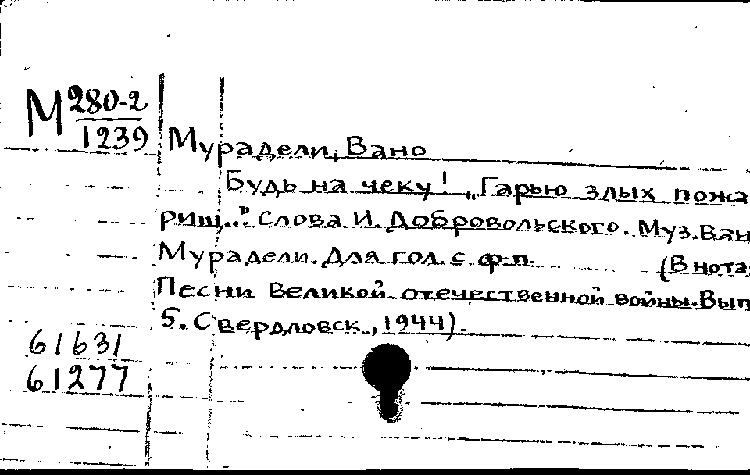 М 280-2
1239
Мурадели, Вано
Будь на чеку! „Гарью злых пожа
рищ..." Слова И. Добровольского. Муз. Ван
Мурадели. Для гол. с ф.п. (В нота
Песни Великой отечественной войны. Вып
5. Свердловск, 1944).
61631
61277